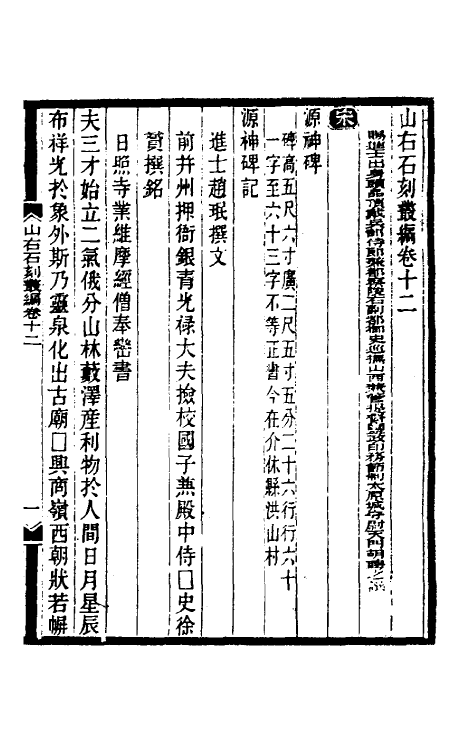 山右石刻叢編卷十二
賜進士出身頭品頂戴兵部侍郎兼都察院右副都御史巡撫山西兼管提督鹽政印務節制太原城守尉天門胡聘之譔
宋
源神碑
碑高五尺六寸廣二尺五寸五分二十六行行六十
一字至六十三字不等正書今在介休縣洪山村
源神碑記
進士趙珉撰文
前并州押衙銀青光禄大夫撿校國子祭酒兼殿中侍□史徐
贇撰銘
日照寺業維摩經僧奉巒書
夫三才始立二氣俄分山林藪澤産利物於人間日月星辰
布祥光於象外斯乃靈泉化出古廟□興商嶺西朝狀若幈
山右石刻叢編卷十二
一